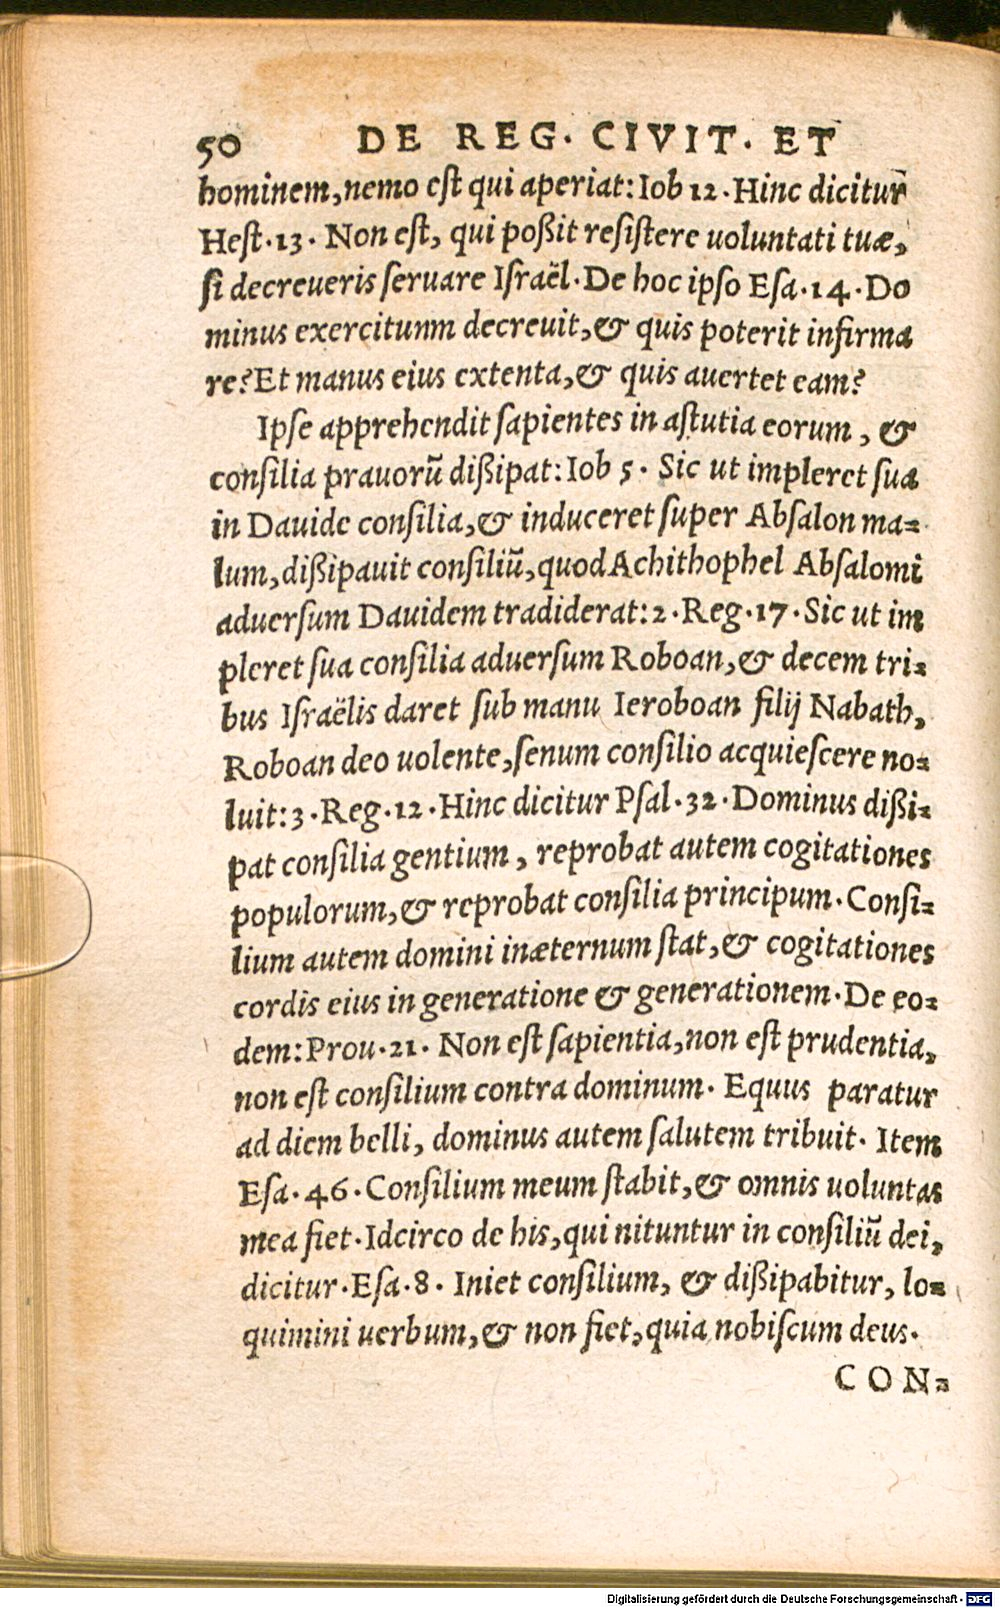 50 DE REG. CIVIT. ET
hominem, nemo est qui aperiat: Iob 12. Hinc dicitur
Hest. 13. Non est, qui poßit resistere uoluntati tuæ,
si decreueris seruare Israël. De hoc ipso Esa. 14. Do
minus exercitunm decreuit, & quis poterit infirma
re? Et manus eius extenta, & quis auertet eam?
Ipse apprehendit sapientes in astutia eorum, &
consilia prauorū dißipat: Iob 5. Sic ut impleret sua
in Dauide consilia, & induceret super Absalon ma-
lum, dißipauit consiliū, quod Achithophel Absalomi
aduersum Dauidem tradiderat: 2. Reg. 17. Sic ut im
pleret sua consilia aduersum Roboan, & decem tri-
bus Israëlis daret sub manu Ieroboan filij Nabath,
Roboan deo uolente, senum consilio acquiescere no-
luit: 3. Reg. 12. Hinc dicitur Psal. 32. Dominus dißi-
pat consilia gentium, reprobat autem cogitationes
populorum, & reprobat consilia principum. Consi-
lium autem domini inæternum stat, & cogitationes
cordis eius in generatione & generationem. De eo-
dem: Prou. 21. Non est sapientia, non est prudentia,
non est consilium contra dominum. Equus paratur
ad diem belli, dominus autem salutem tribuit. Item
Esa. 46. Consilium meum stabit, & omnis uoluntas
mea fiet. Idcirco de his, qui nituntur in consiliū dei,
dicitur. Esa. 8. Iniet consilium, & dißipabitur, lo-
quimini uerbum, & non fiet, quia nobiscum deus.
CON-
Digitalisierung gefördert durch die Deutsche Forschungsgemeinschaft - DFG